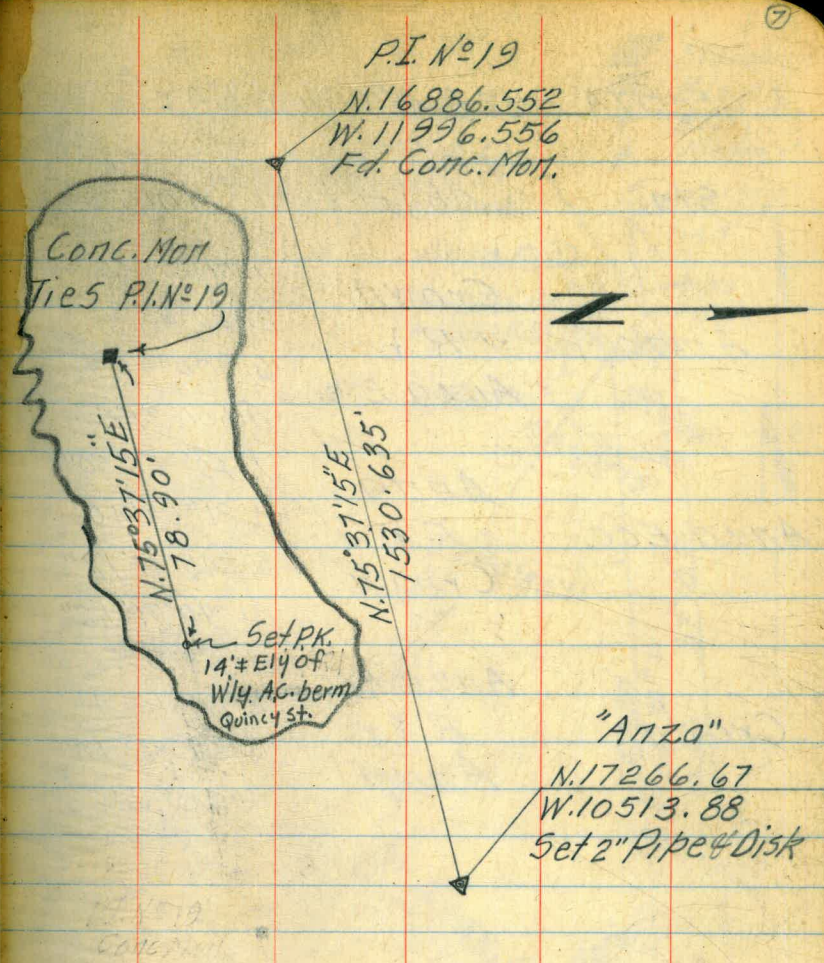 7
P.I. Nº19
N.16886.552
W.11996.556
Fd. Conc. Mon.
Conc. Mon
Ties P.I. Nº19
N
N.75°37'15"E
78.90'
N.75°37'15"E
1530.635'
Set P.K.
14'± Ely of
Wly. A.C. berm
Quincy St.
"Anza"
N.17266.67
W.10513.88
Set 2" Pipe & Disk
P.I. Nº19
Conc Mon